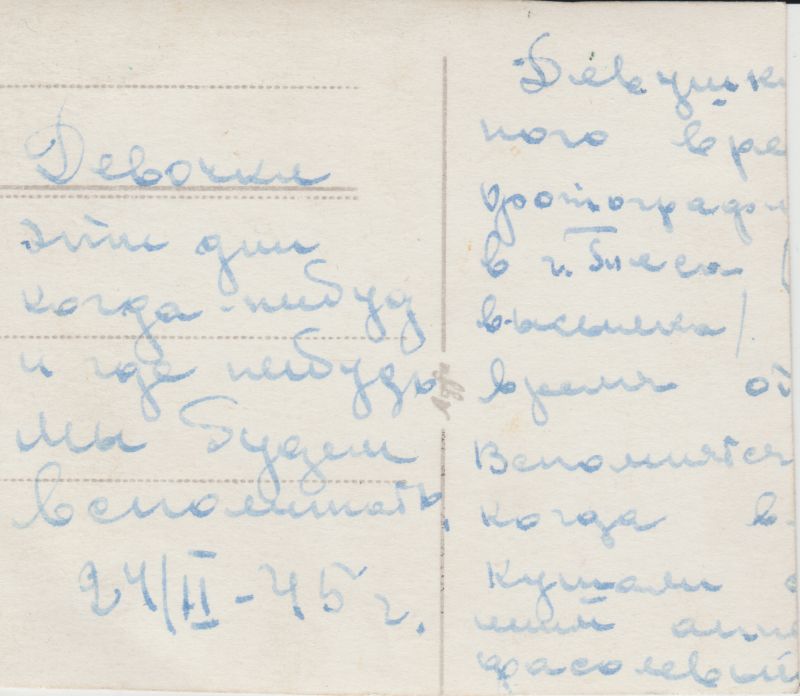 Девочки
эти дни
когда-нибуд
и где нибудь
мы будем
вспоминать.
24/II-45 г.
Девушк
ного вре
фотограф
в г.
высылка/
время об
Вспомнятся
когда в
кушали
ний
фасолевый